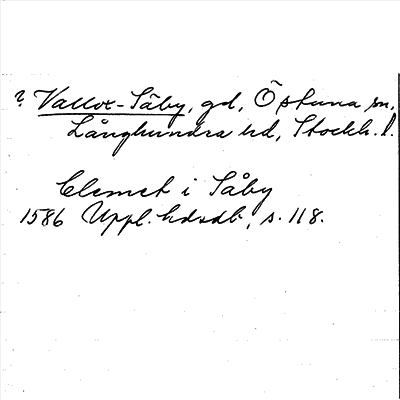 ? Vallox-Säby, gd, Östuna sn,
Långhundra hd, Stockh. l.
Clemet i Såby
1586 Uppl. hdrdb, s. 118.